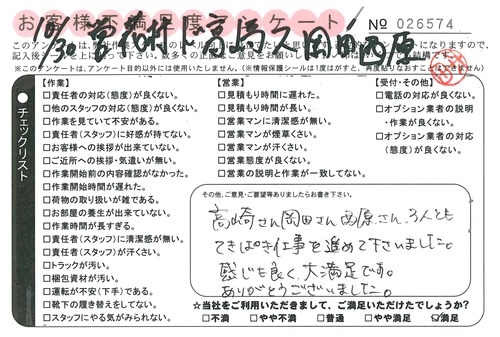 お客様不満足度アンケート
No 026574
このアンケートは、
記入後
上げて下さい。
※このアンケートは、アンケート目的以外には使用いたしません。(※情報保護シールは1度はがすと、再度貼りなおすことはできません)
10/30
岡田西原
チェックリスト
【作業】
□責任者の対応(態度)が良くない。
□他のスタッフの対応(態度)が良くない。
□作業を見ていて不安がある。
□責任者(スタッフ)に好感が持てない。
□お客様への挨拶が出来ていない。
□ご近所への挨拶・気遣いが無い。
□作業開始前の内容確認がなかった。
□作業開始時間が遅れた。
□荷物の取り扱いが雑である。
□お部屋の養生が出来ていない。
□作業時間が長すぎる。
□責任者(スタッフ)に清潔感が無い。
□責任者(スタッフ)が汗くさい。
□トラックが汚い。
□梱包資材が汚い。
□運転が不安(下手)である。
□靴下の履き替えをしてない。
□スタッフにやる気がみられない。
【営業】
□見積もり時間に遅れた。
□見積もり時間が長い。
□営業マンに清潔感が無い。
□営業マンが煙草くさい。
□営業マンが汗くさい。
□営業態度が良くない。
□営業の説明と作業が一致してない。
【受付・その他】
□電話の対応が良くない。
□オプション業者の説明
・作業が良くない。
□オプション業者の対応
(態度)が良くない。
その他、ご意見・ご要望等ありましたらお書き下さい。
高崎さん岡田さん西原さん、3人とも
てきぱき仕事を進めて下さいました。
感じも良く、大満足です。
ありがとうございました。
☆当社をご利用いただきまして、ご満足いただけたでしょうか?
□不満 □やや不満 □普通 □やや満足 ☑満足